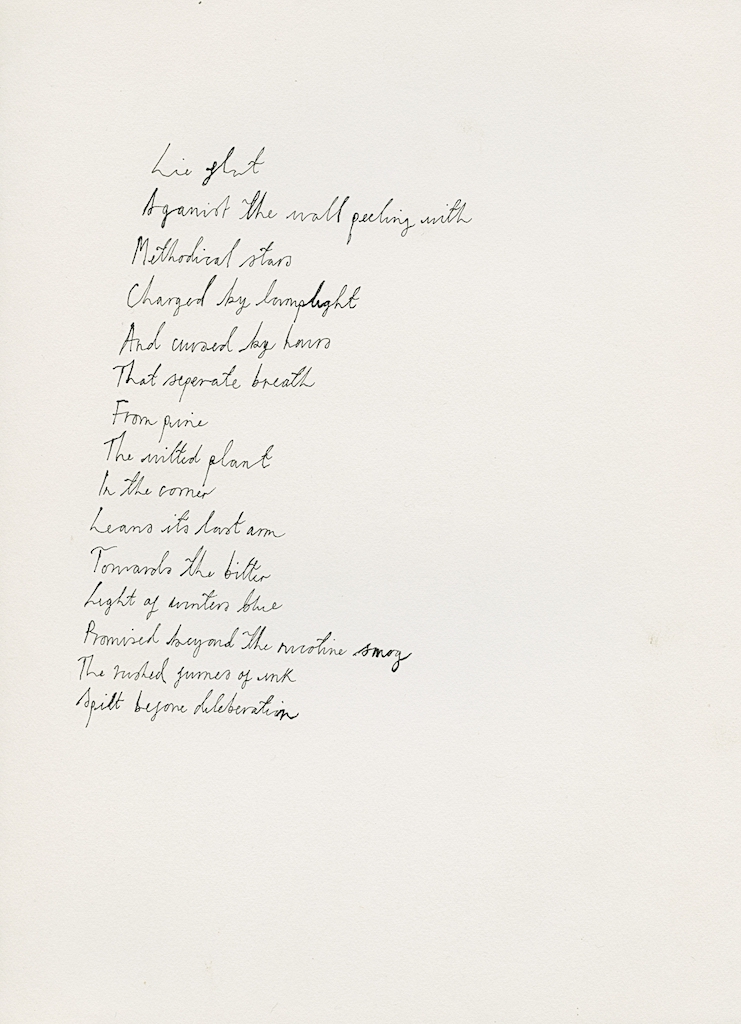 Lie flat
Aganist the wall peeling with
Methodical stars
Charged by lamplight
And cursed by hours
That seperate breath
From pine
The wilted plant
In the corner
Leans its last arm
Towards the bitter
Light of winters blue
Promised beyond the nicotine smog
The rushed fumes of ink
Spilt before deleberation